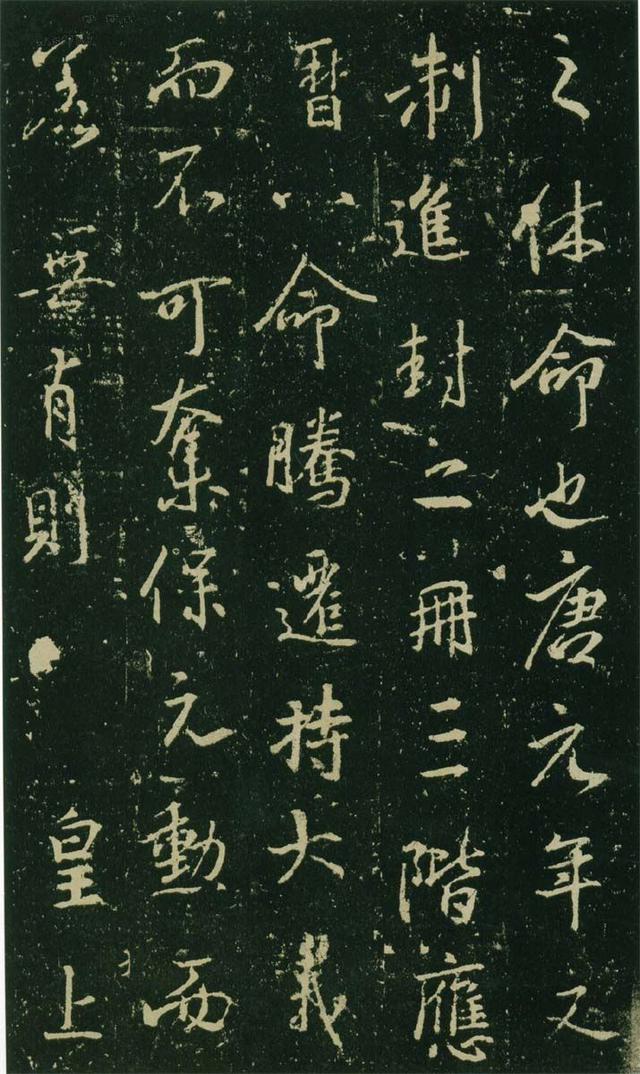 之休命也唐元年之
制進封二冊三階應
曆八命騰遷持大義
而不可奪保元勳而
羔無有則皇上